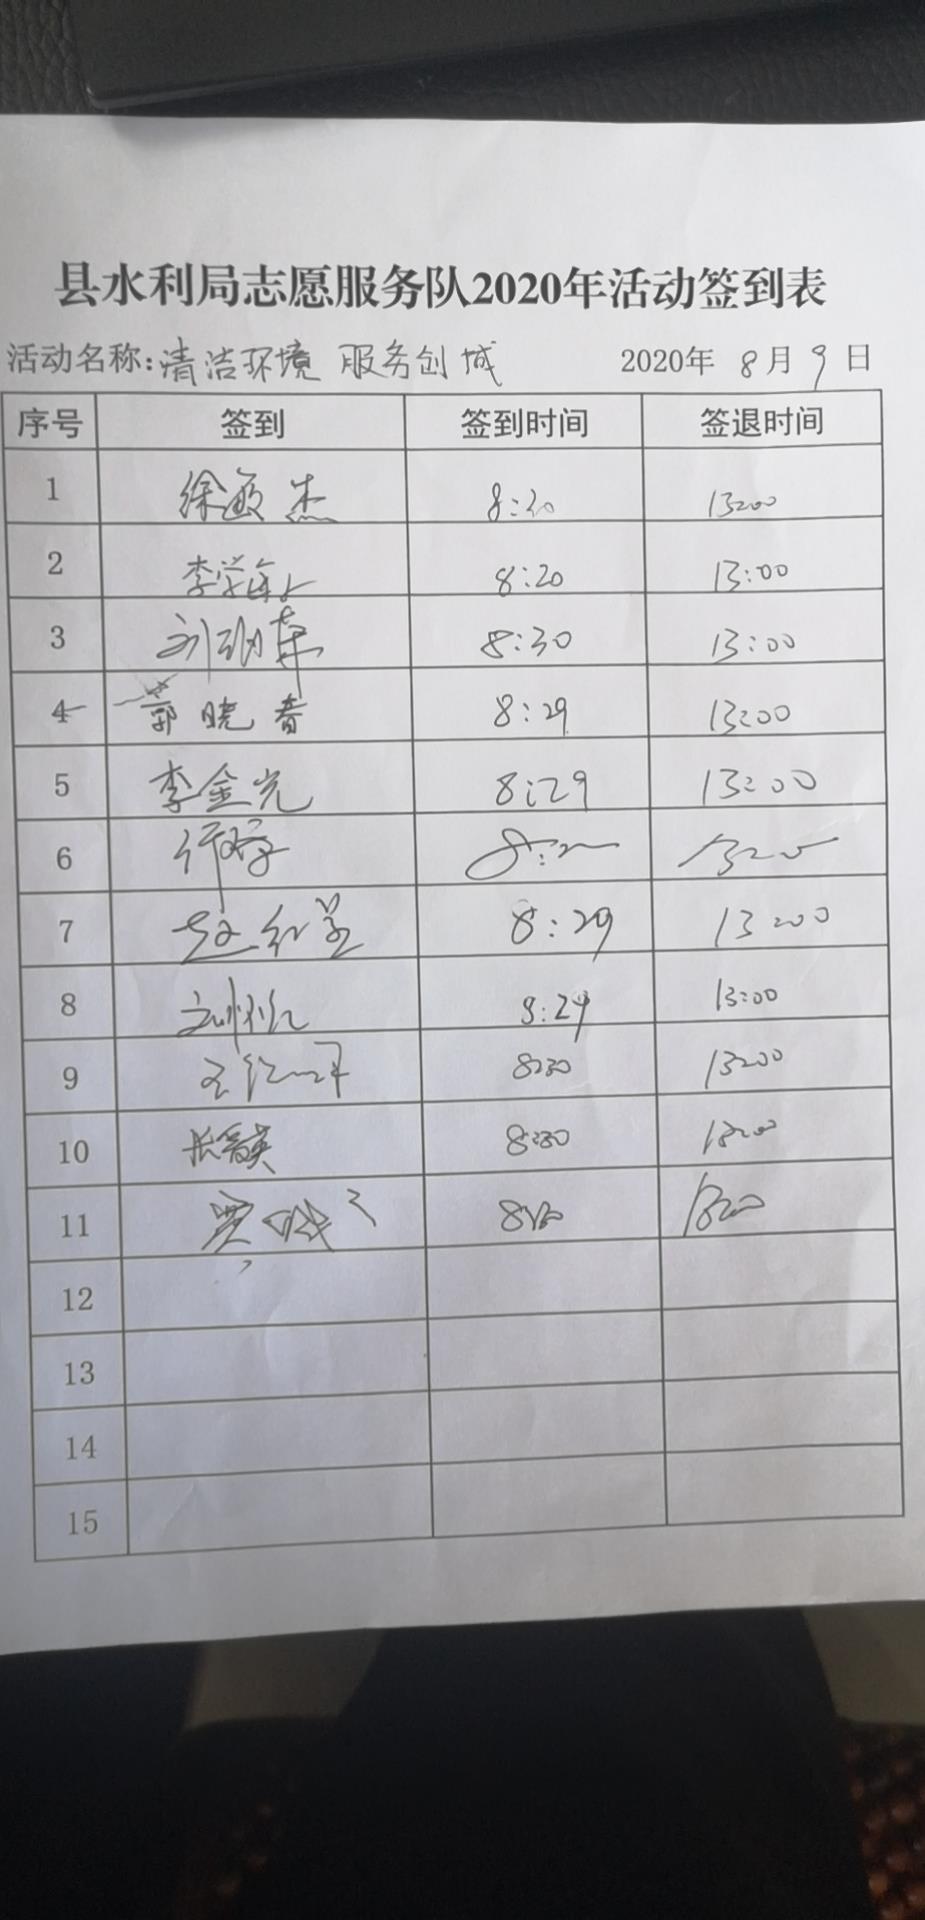 县水利局志愿服务队2020年活动签到表
活动名称:清洁环境 服务创城 2020年 8月9日
序号 签到 签到时间 签退时间
1 徐 杰 8:30 13:00
2 李学 8:20 13:00
3 刘 8:30 13:00
4 郭晓春 8:29 13:00
5 李金光 8:29 13:00
6
7 赵红 8:29 13:00
8 刘 8:29 13:00
9 王红 8:30 13:00
10 8:30 13:00
11 贾
12
13
14
15